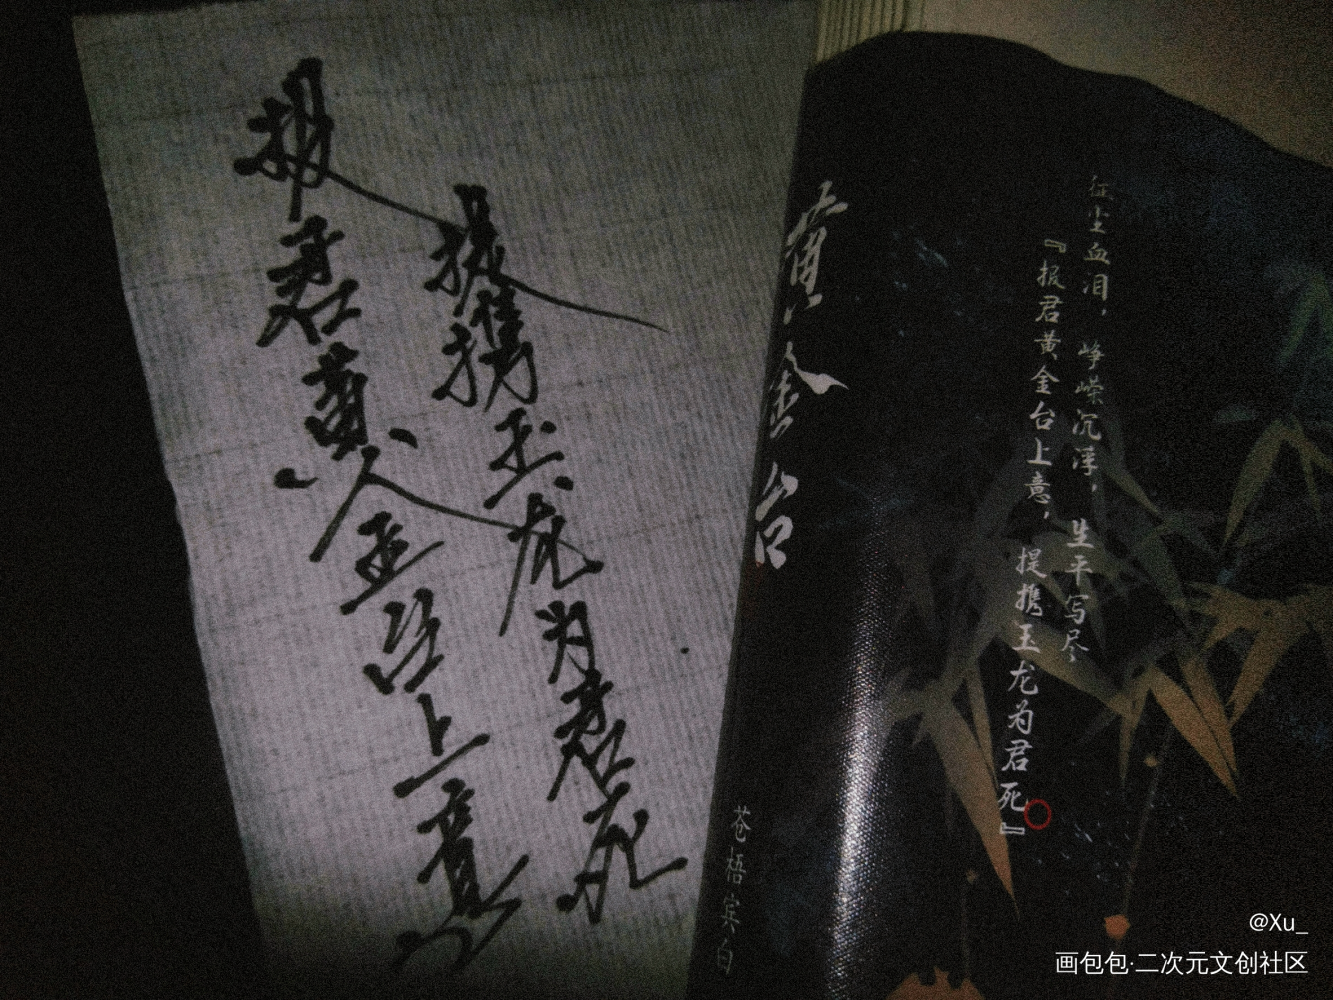 报君黄金台上意
提携玉龙为君死
黄金台
苍梧宾白
征尘血泪，峥嵘沉浮，生平写尽
『报君黄金台上意，提携玉龙为君死』
@Xu_
画包包·二次元文创社区